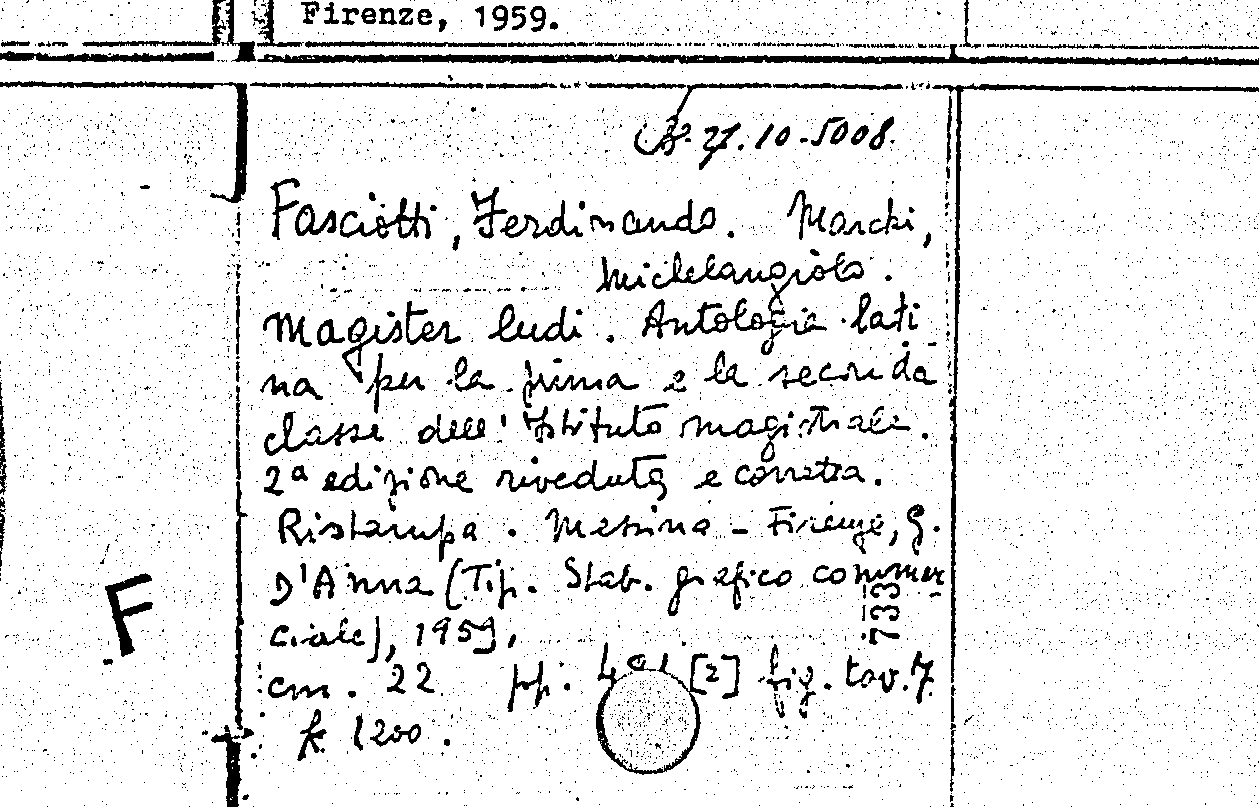 Firenze, 1959.
B. 27.10-5008.
Fasciotti, Ferdinando. Marchi,
Michelangiolo.
Magister ludi. Antologia lati
na per la prima e la seconda
classe dell'Istituto magistrale.
2ª edizione riveduta e corretta.
Ristampa. Messina - Firenze, G.
D'Anna (Tip. Stab. grafico commer
ciale), 1959.
733
cm. 22 pp. [2] fig. tav. 7.
1200.
F